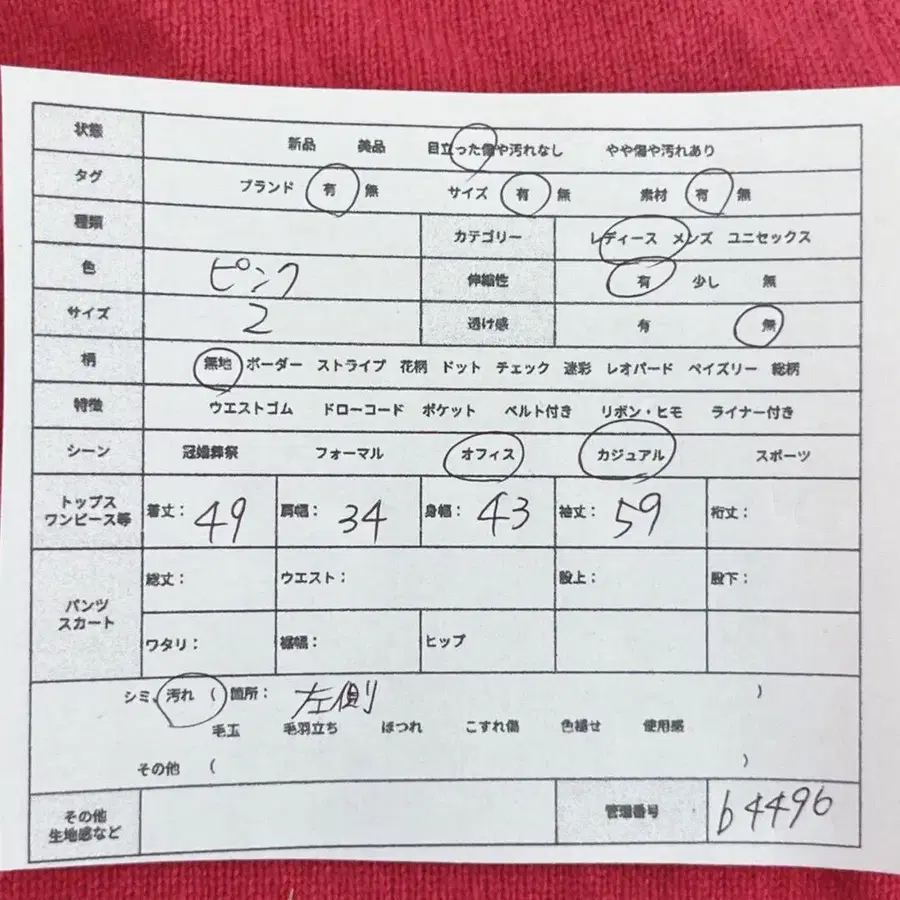 状態 新品 美品 目立った傷や汚れなし やや傷や汚れあり
タグ ブランド 有 無 サイズ 有 無 素材 有 無
種類 カテゴリー レディース メンズ ユニセックス
色 ピンク 伸縮性 有 少し 無
サイズ 2 透け感 有 無
柄 無地 ボーダー ストライプ 花柄 ドット チェック 迷彩 レオパード ペイズリー 総柄
特徴 ウエストゴム ドローコード ポケット ベルト付き リボン・ヒモ ライナー付き
シーン 冠婚葬祭 フォーマル オフィス カジュアル スポーツ
トップス
ワンピース等 着丈: 49 肩幅: 34 身幅: 43 袖丈: 59 裄丈:
パンツ
スカート 総丈: ウエスト: 股上: 股下:
ワタリ: 裾幅: ヒップ
シミ、汚れ ( 箇所: 左側 )
毛玉 毛羽立ち ほつれ こすれ傷 色褪せ 使用感
その他 ( )
その他
生地感など 管理番号 b4496